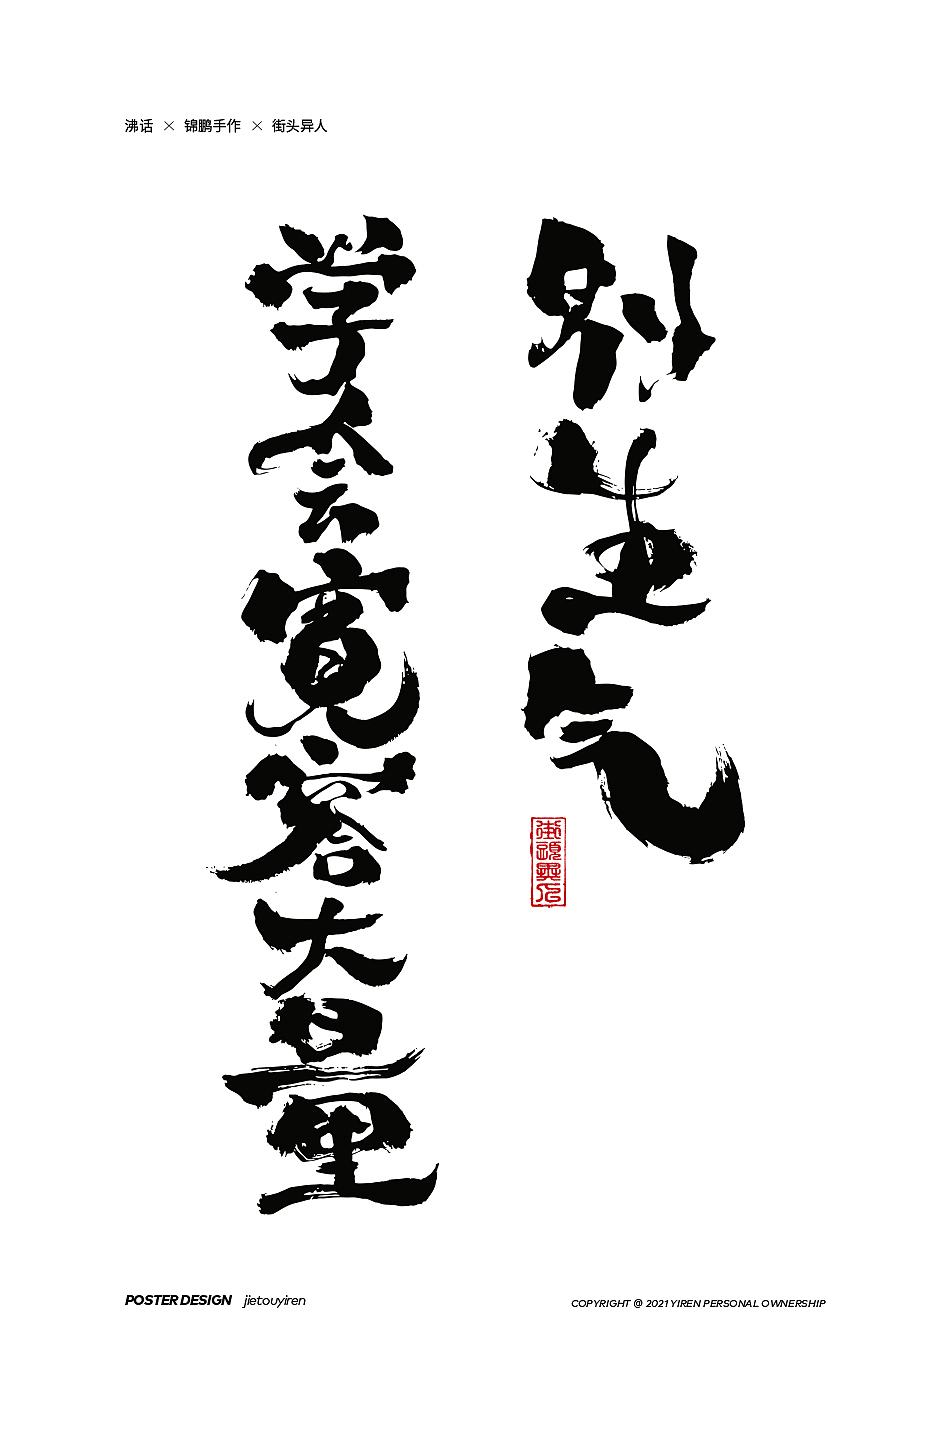 沸话 × 锦鹏手作 × 街头异人
别生气
学会宽容大量
街頭異人
POSTER DESIGN jietouyiren
COPYRIGHT @ 2021 YIREN PERSONAL OWNERSHIP